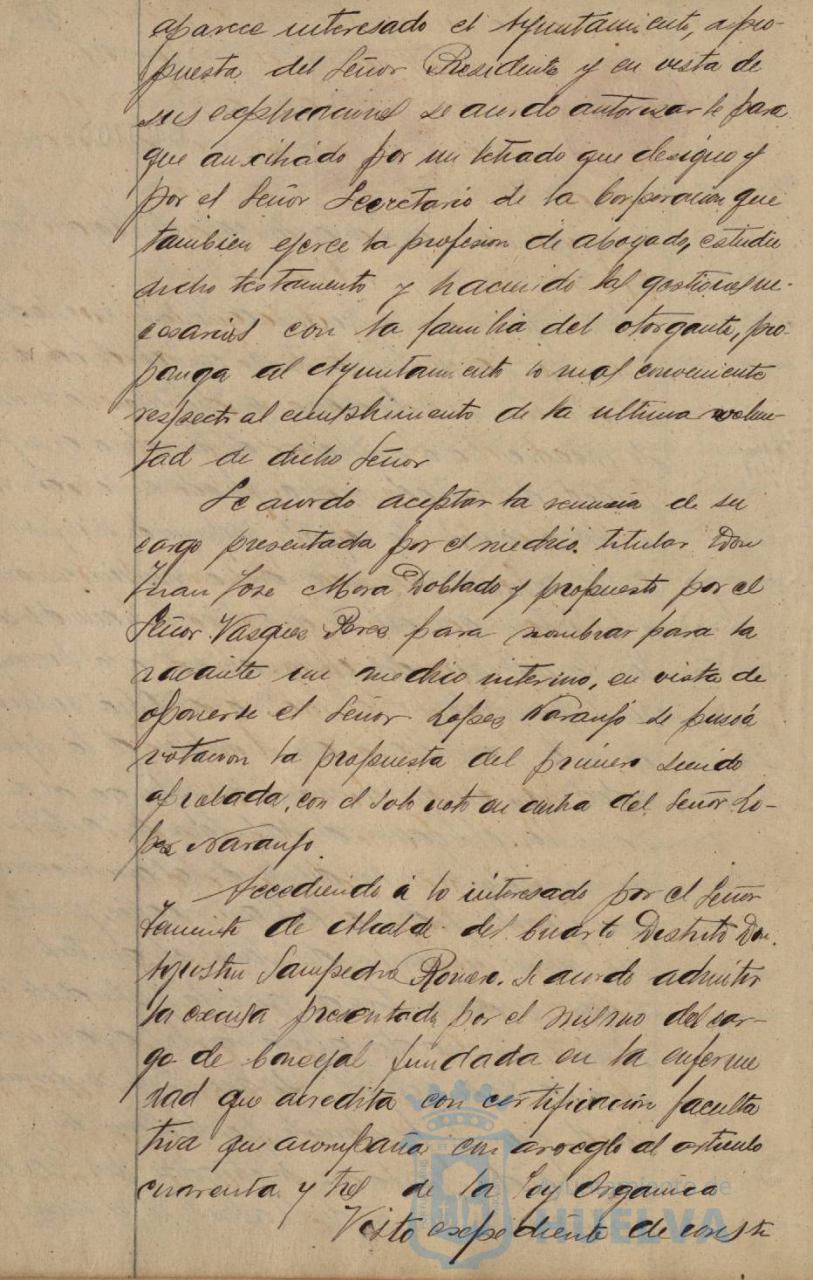 aparece interesado el Ayuntamiento, a pro-
puesta del Señor Presidente y en vista de
sus explicaciones se acordo autorizarle para
que auxiliado por un letrado que designo y
por el Señor Secretario de la Corporacion que
tambien ejerce la profesion de abogado, estudie
dicho testamento y haciendo las gestiones ne-
cesarias con la familia del otorgante, pro-
ponga al Ayuntamiento lo mas conveniente
respecto al cumplimiento de la ultima volun-
tad de dicho Señor
Se acordo aceptar la renuncia de su
cargo presentada por el medico titular Don
Juan Jose Mora Doblado y propuesto por el
Señor Vasques Peres para nombrar para la
vacante un medico interino, en vista de
oponerse el Señor Lopes Naranjo se puso á
votacion la propuesta del primero siendo
aprobada, con el solo voto en contra del Señor Lo-
pes Naranjo.
Accediendo á lo interesado por el Señor
Teniente de Alcalde del Cuarto Distrito Don
Agustin Sampedro Romero. Se acordo admitir
la excusa presentada por el mismo del car-
go de Concejal fundada en la enferme
dad que acredita con certificacion faculta
tiva que acompaña con arreglo al articulo
cuarenta y tres de la Ley Organica
Visto expediente de
Ayuntamiento de
HUELVA